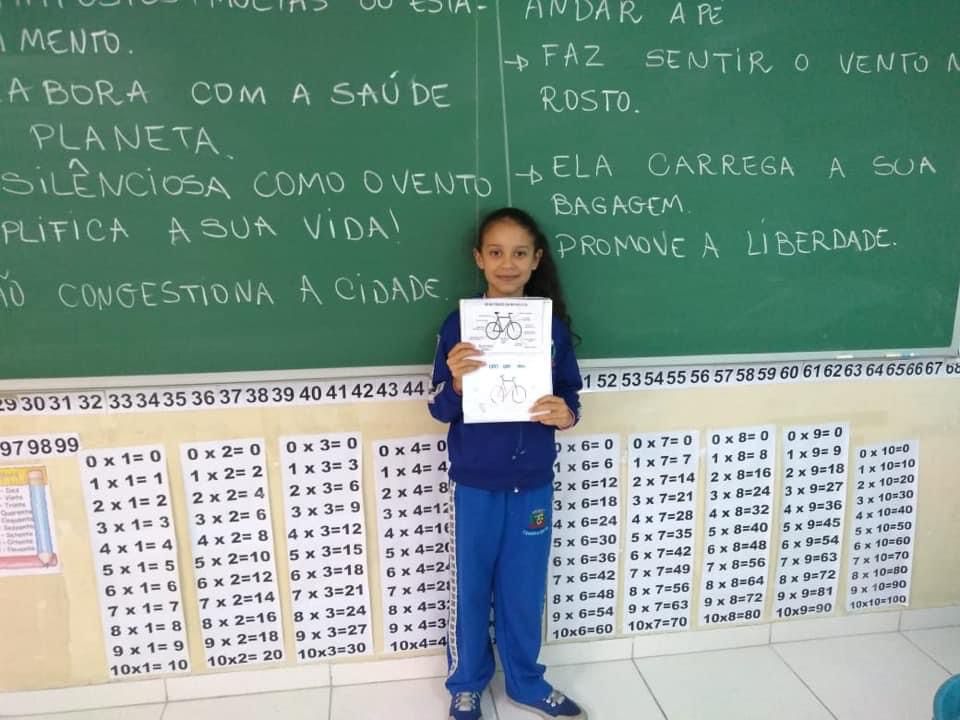 MULTAS OU ESTA-
MENTO.
ABORA COM A SAÚDE
PLANETA.
SILÊNCIOSA COMO O VENTO
PLIFICA A SUA VIDA!
ÃO CONGESTIONA A CIDADE.
ANDAR A PÉ
→ FAZ SENTIR O VENTO N
ROSTO.
→ ELA CARREGA A SUA
BAGAGEM.
PROMOVE A LIBERDADE.
29 30 31 32 33 34 35 36 37 38 39 40 41 42 43 44
51 52 53 54 55 56 57 58 59 60 61 62 63 64 65 66 67 68
97 98 99
0 x 1= 0
1 x 1= 1
2 x 1= 2
3 x 1= 3
4 x 1= 4
5 x 1= 5
6 x 1= 6
7 x 1= 7
8 x 1= 8
9 x 1= 9
10x1= 10
0 x 2= 0
1 x 2= 2
2 x 2= 4
3 x 2= 6
4 x 2= 8
5 x 2=10
6 x 2=12
7 x 2=14
8 x 2=16
9 x 2=18
10x2= 20
0 x 3= 0
1 x 3= 3
2 x 3= 6
3 x 3= 9
4 x 3=12
5 x 3=15
6 x 3=18
7 x 3=21
8 x 3=24
9 x 3=27
10x3=30
0 x 4= 0
1 x 4= 4
2 x 4= 8
3 x 4=12
4 x 4=16
5 x 4=20
6 x 4=24
7 x 4=28
8 x 4=32
9 x 4=3
10x4=4
0 x 6= 0
1 x 6= 6
2 x 6=12
3 x 6=18
4 x 6=24
5 x 6=30
6 x 6=36
7 x 6=42
8 x 6=48
9 x 6=54
10x6=60
0 x 7= 0
1 x 7= 7
2 x 7=14
3 x 7=21
4 x 7=28
5 x 7=35
6 x 7=42
7 x 7=49
8 x 7=56
9 x 7=63
10x7=70
0 x 8= 0
1 x 8= 8
2 x 8=16
3 x 8=24
4 x 8=32
5 x 8=40
6 x 8=48
7 x 8=56
8 x 8=64
9 x 8=72
10x8=80
0 x 9= 0
1 x 9= 9
2 x 9=18
3 x 9=27
4 x 9=36
5 x 9=45
6 x 9=54
7 x 9=63
8 x 9=72
9 x 9=81
10x9=90
0 x 10=0
1 x 10=10
2 x 10=20
3 x 10=30
4 x 10=40
5 x 10=50
6 x 10=60
7 x 10=70
8 x 10=80
9 x 10=90
10x10=100